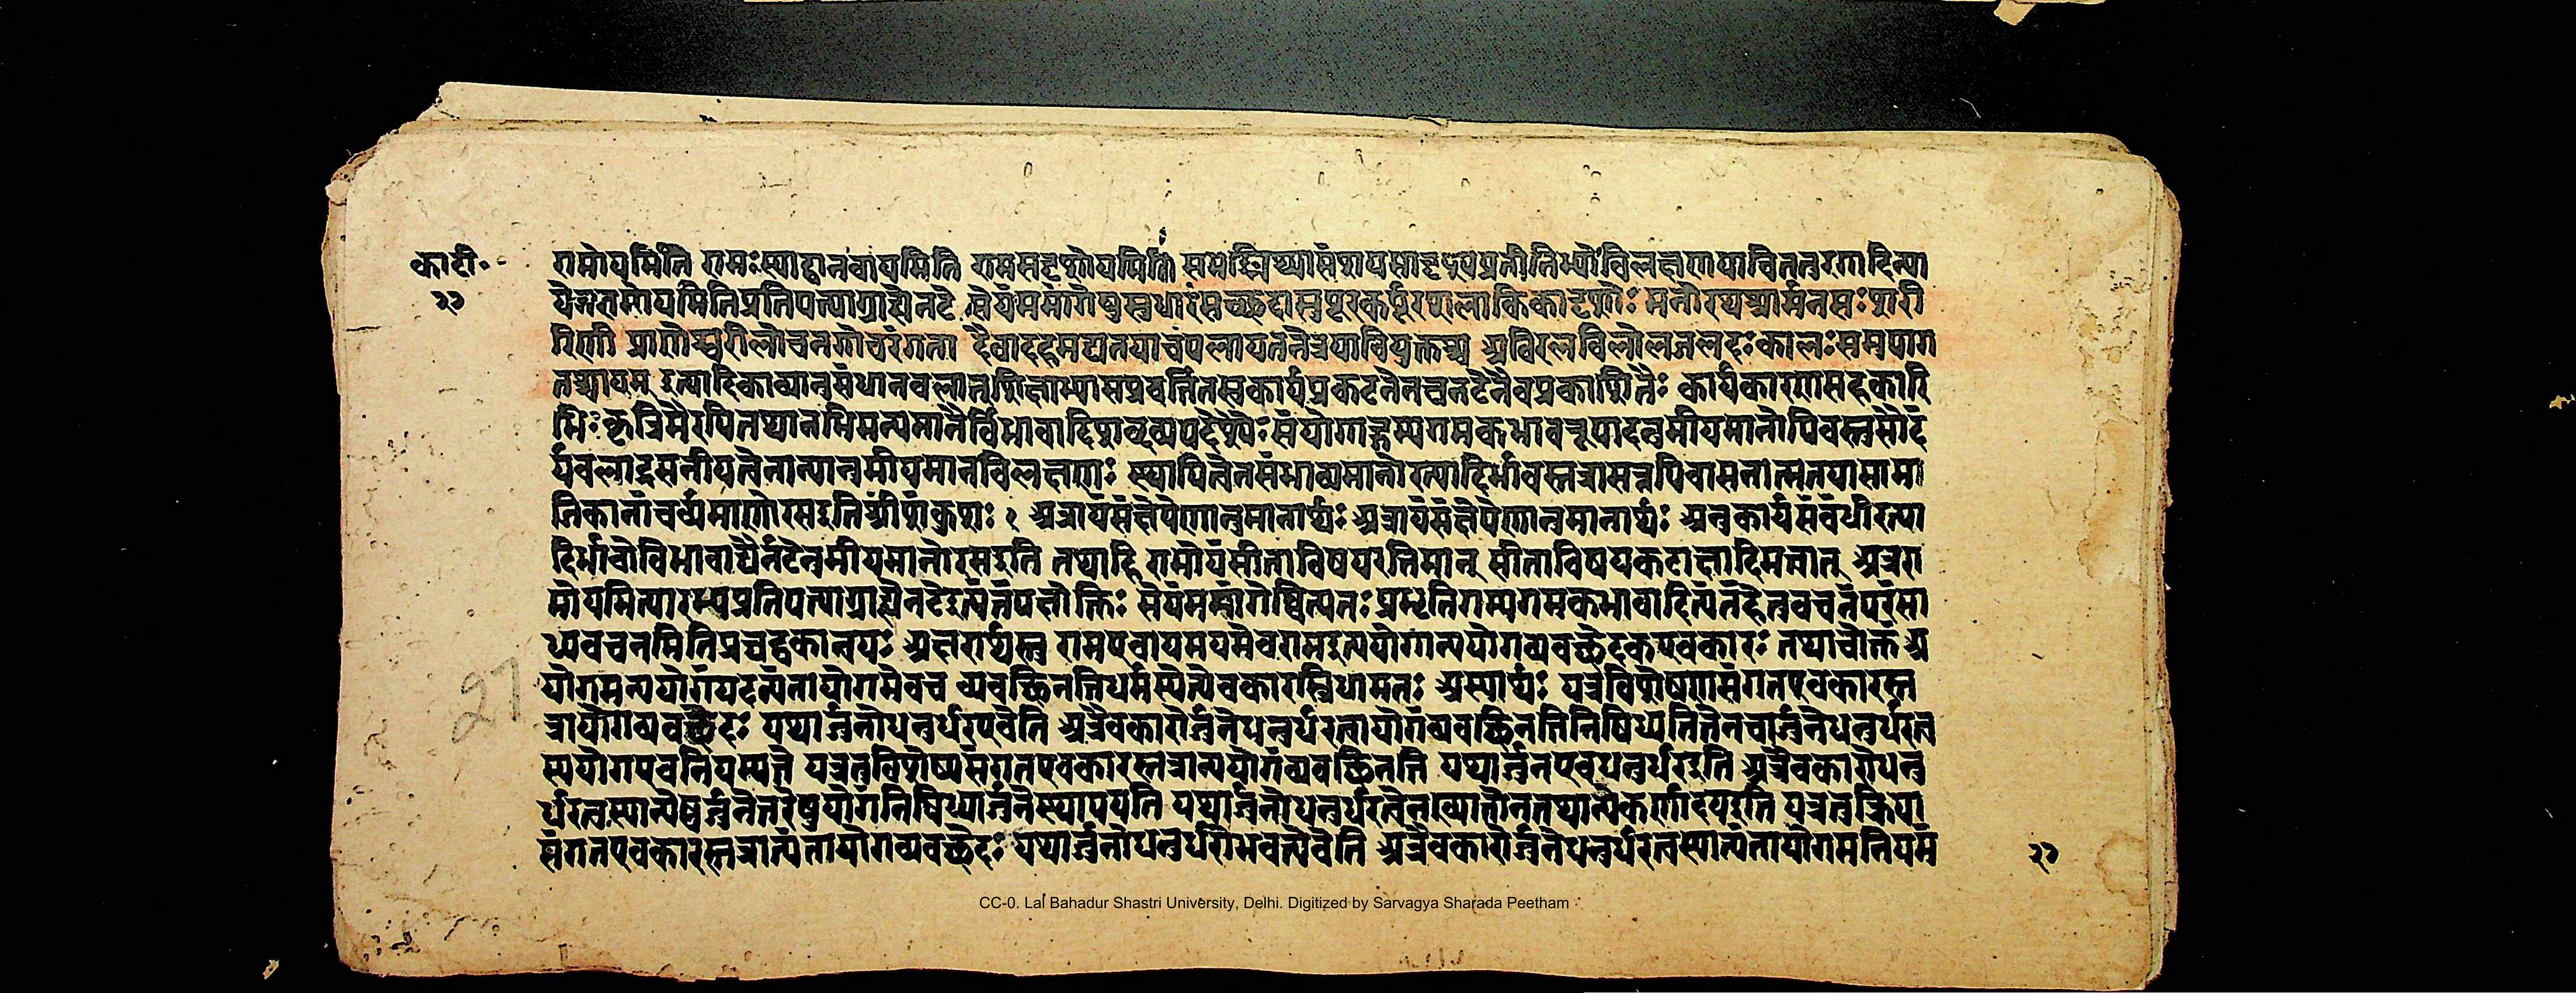 का॰टी॰
२७
रामोयमिति रामःस्याद्वानवायमिति रामसदृशोयमिति सम्यङ्मिथ्यासंशयसादृश्यप्रतीतिभ्योविलक्षणयाचित्रतुरगादिन्या
येनरामोयमितिप्रतिपत्त्याग्राह्येनटे सेयंममांगेषुसुधारसच्छटासुपूरकर्पूरशलाकिकादृशोः मनोरथश्रीर्मनसःशरी
रिणी प्राणेश्वरीलोचनगोचरंगता दैवादहमद्यतयाचपलायतनेत्रयावियुक्तश्च अविरलविलोलजलदःकालःसमुपाग
तश्चायम् इत्यादिकाव्यानुसंधानबलात् शिक्षाभ्यासप्रवर्तितस्वकार्यप्रकटनेनचनटेनैवप्रकाशितैः कार्यकारणसहकारि
भिःकृत्रिमैरपितथानभिमन्यमानैर्विभावादिशब्दव्यपदेश्यैः संयोगाद्गम्यगमकभावरूपादनुमीयमानोपिवस्तुसौंद
र्यबलाद्रसनीयत्वेनान्यानुमीयमानविलक्षणः स्थायित्वेनसंभाव्यमानोरत्यादिर्भावस्तत्रासन्नपिवासनात्मतयासामा
जिकानांचर्व्यमाणोरसइतिश्रीशंकुकः २ अत्रायंसंक्षेपेणानुमानार्थः अत्रायंसंक्षेपेणानुमानार्थः अनुकार्यसंबंधीरत्या
दिर्भावोविभावाद्यैर्नटेनुमीयमानोरसइति तथाहि रामोयंसीताविषयरतिमान् सीताविषयककटाक्षादिमत्त्वात् अत्ररा
मोयमित्यारभ्यप्रतिपत्त्याग्राह्येनटेइत्यंतंपक्षोक्तिः सेयंममांगेष्वित्यतःप्रभृतिगम्यगमकभावादित्यंतंहेतुवचनंपरंसा
ध्यवचनमितिप्रघट्टकान्वयः अक्षरार्थस्तु रामएवायमयमेवरामइत्ययोगान्ययोगव्यवच्छेदकएवकारः तथाचोक्तं अ
योगमन्ययोगंयदत्यंतायोगमेवच व्यवच्छिनत्तिधर्मस्येत्येवकारस्त्रिधामतः अस्यार्थः यत्रविशेषणसंगतएवकारस्त
त्रायोगव्यवच्छेदः यथार्जुनोधनुर्धरएवेति अत्रैवकारोर्जुनेधनुर्धरत्वायोगंव्यवच्छिनत्तिनिषिध्यतितेनचार्जुनेधनुर्धरत्व
स्ययोगएवनियम्यते यत्रतुविशेष्यसंगतएवकारस्तत्रान्ययोगंव्यवछिनत्ति यथार्जुनएवधनुर्धरइति अत्रैवकारोधनु
र्धरत्वस्यान्येष्वर्जुनेतरेषुयोगंनिषिध्यार्जुनेस्थापयति यथार्जुनोधनुर्धरत्वेनख्यातोनतथान्येकर्णादयइति यत्रतुक्रिया
संगतएवकारस्तत्रात्यंतायोगव्यवच्छेदः यथार्जुनोधनुर्धरोभवत्येवेति अत्रैवकारोर्जुनेधनुर्धरत्वस्यात्यंतायोगमनियमं
२७
27
CC-0. Lal Bahadur Shastri University, Delhi. Digitized by Sarvagya Sharada Peetham